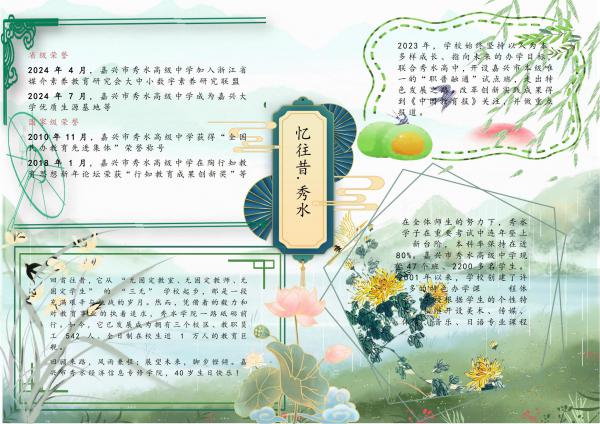 省级荣誉
2024 年 4 月，嘉兴市秀水高级中学加入浙江省
媒介素养教育研究会大中小数字素养研究联盟
2024 年 7 月，嘉兴市秀水高级中学成为嘉兴大
学优质生源基地等
国家级荣誉
2010 年 11 月，嘉兴市秀水高级中学获得“全国
民办教育先进集体”荣誉称号
2018 年 1 月，嘉兴市秀水高级中学在陶行知教
育思想新年论坛荣获“行知教育成果创新奖”等
忆往昔·秀水
2023 年，学校始终坚持以人为本、
多样成长、指向未来的办学目标，
联合秀水高中，开设嘉兴市本级唯
一的“职普融通”试点班，走出特
色发展之路，改革创新实践成果得
到《中国教育报》关注，并做重点
报道。
回首往昔，它从“无固定教室、无固定教师、无
固定学生”的“三无”学校起步，那是一段
充满艰辛与挑战的岁月。然而，凭借着的毅力和
对教育事业的执着追求，秀水学院一路砥砺前
行。如今，它已发展成为拥有三个校区、教职员
工 542 人、全日制在校生近 1 万人的教育巨
回顾来路，风雨兼程；展望未来，脚步铿锵。嘉
兴市秀水经济信息专修学院，40 岁生日快乐！
在全体师生的努力下，秀水
学子在重要考试中连年登上
新台阶，本科率保持在近
80%。嘉兴市秀水高级中学现
有 47 个班，2200 多名学生。
2001 年以来，学校创建了许
多的特色办学课 程体
校根据学生的个性特
开设美术、传媒、
体 音乐、日语专业课程